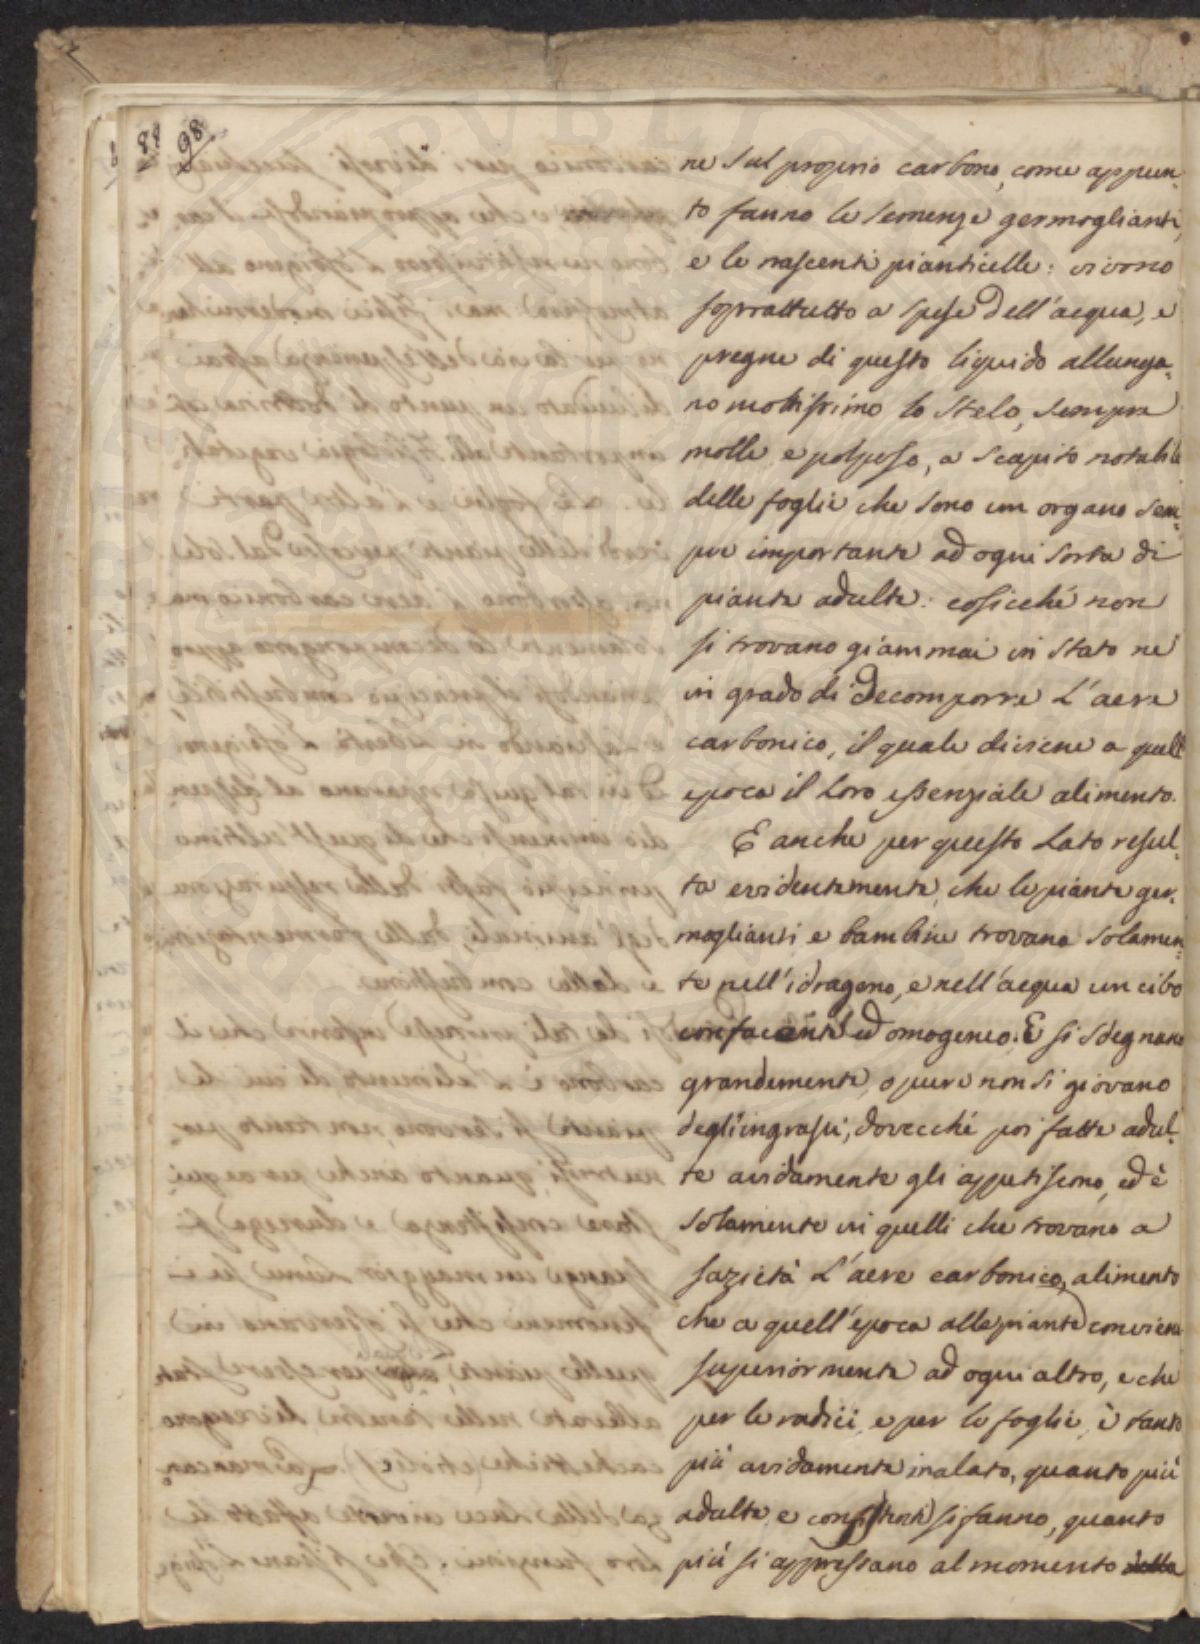 88 98
ne sul proprio carbono, come appun-
to fanno le semenze germoglianti,
e le nascenti pianticelle: vivono
soprattutto a spese dell'acqua, e
pregne di questo liquido allunga-
no moltissimo lo stelo, sempre
molle e polposo, a scapito notabile
delle foglie che sono un organo sem-
pre importante ad ogni sorta di
piante adulte: cosicché non
si trovano giammai in stato ne
in grado di decomporre l'aere
carbonico, il quale diviene a quell'
epoca il loro essenziale alimento.
E anche per questo lato resul-
ta evidentemente, che le piante ger-
moglianti e bambine trovano solamen-
te nell'idrogeno, e nell'acqua un cibo
confacente ed omogeneo. E si sdegnano
grandemente, o pure non si giovano
degl'ingrassi, dovecché poi fatte adul-
te avidamente gli appetiscono, ed è
solamente in quelli che trovano a
sazietà l'aere carbonico, alimento
che a quell'epoca alle piante conviene
superiormente ad ogni altro, e che
per le radici e per le foglie, è tanto
più avidamente inalato, quanto più
adulte e consistenti si fanno, quanto
più si appressano al momento della